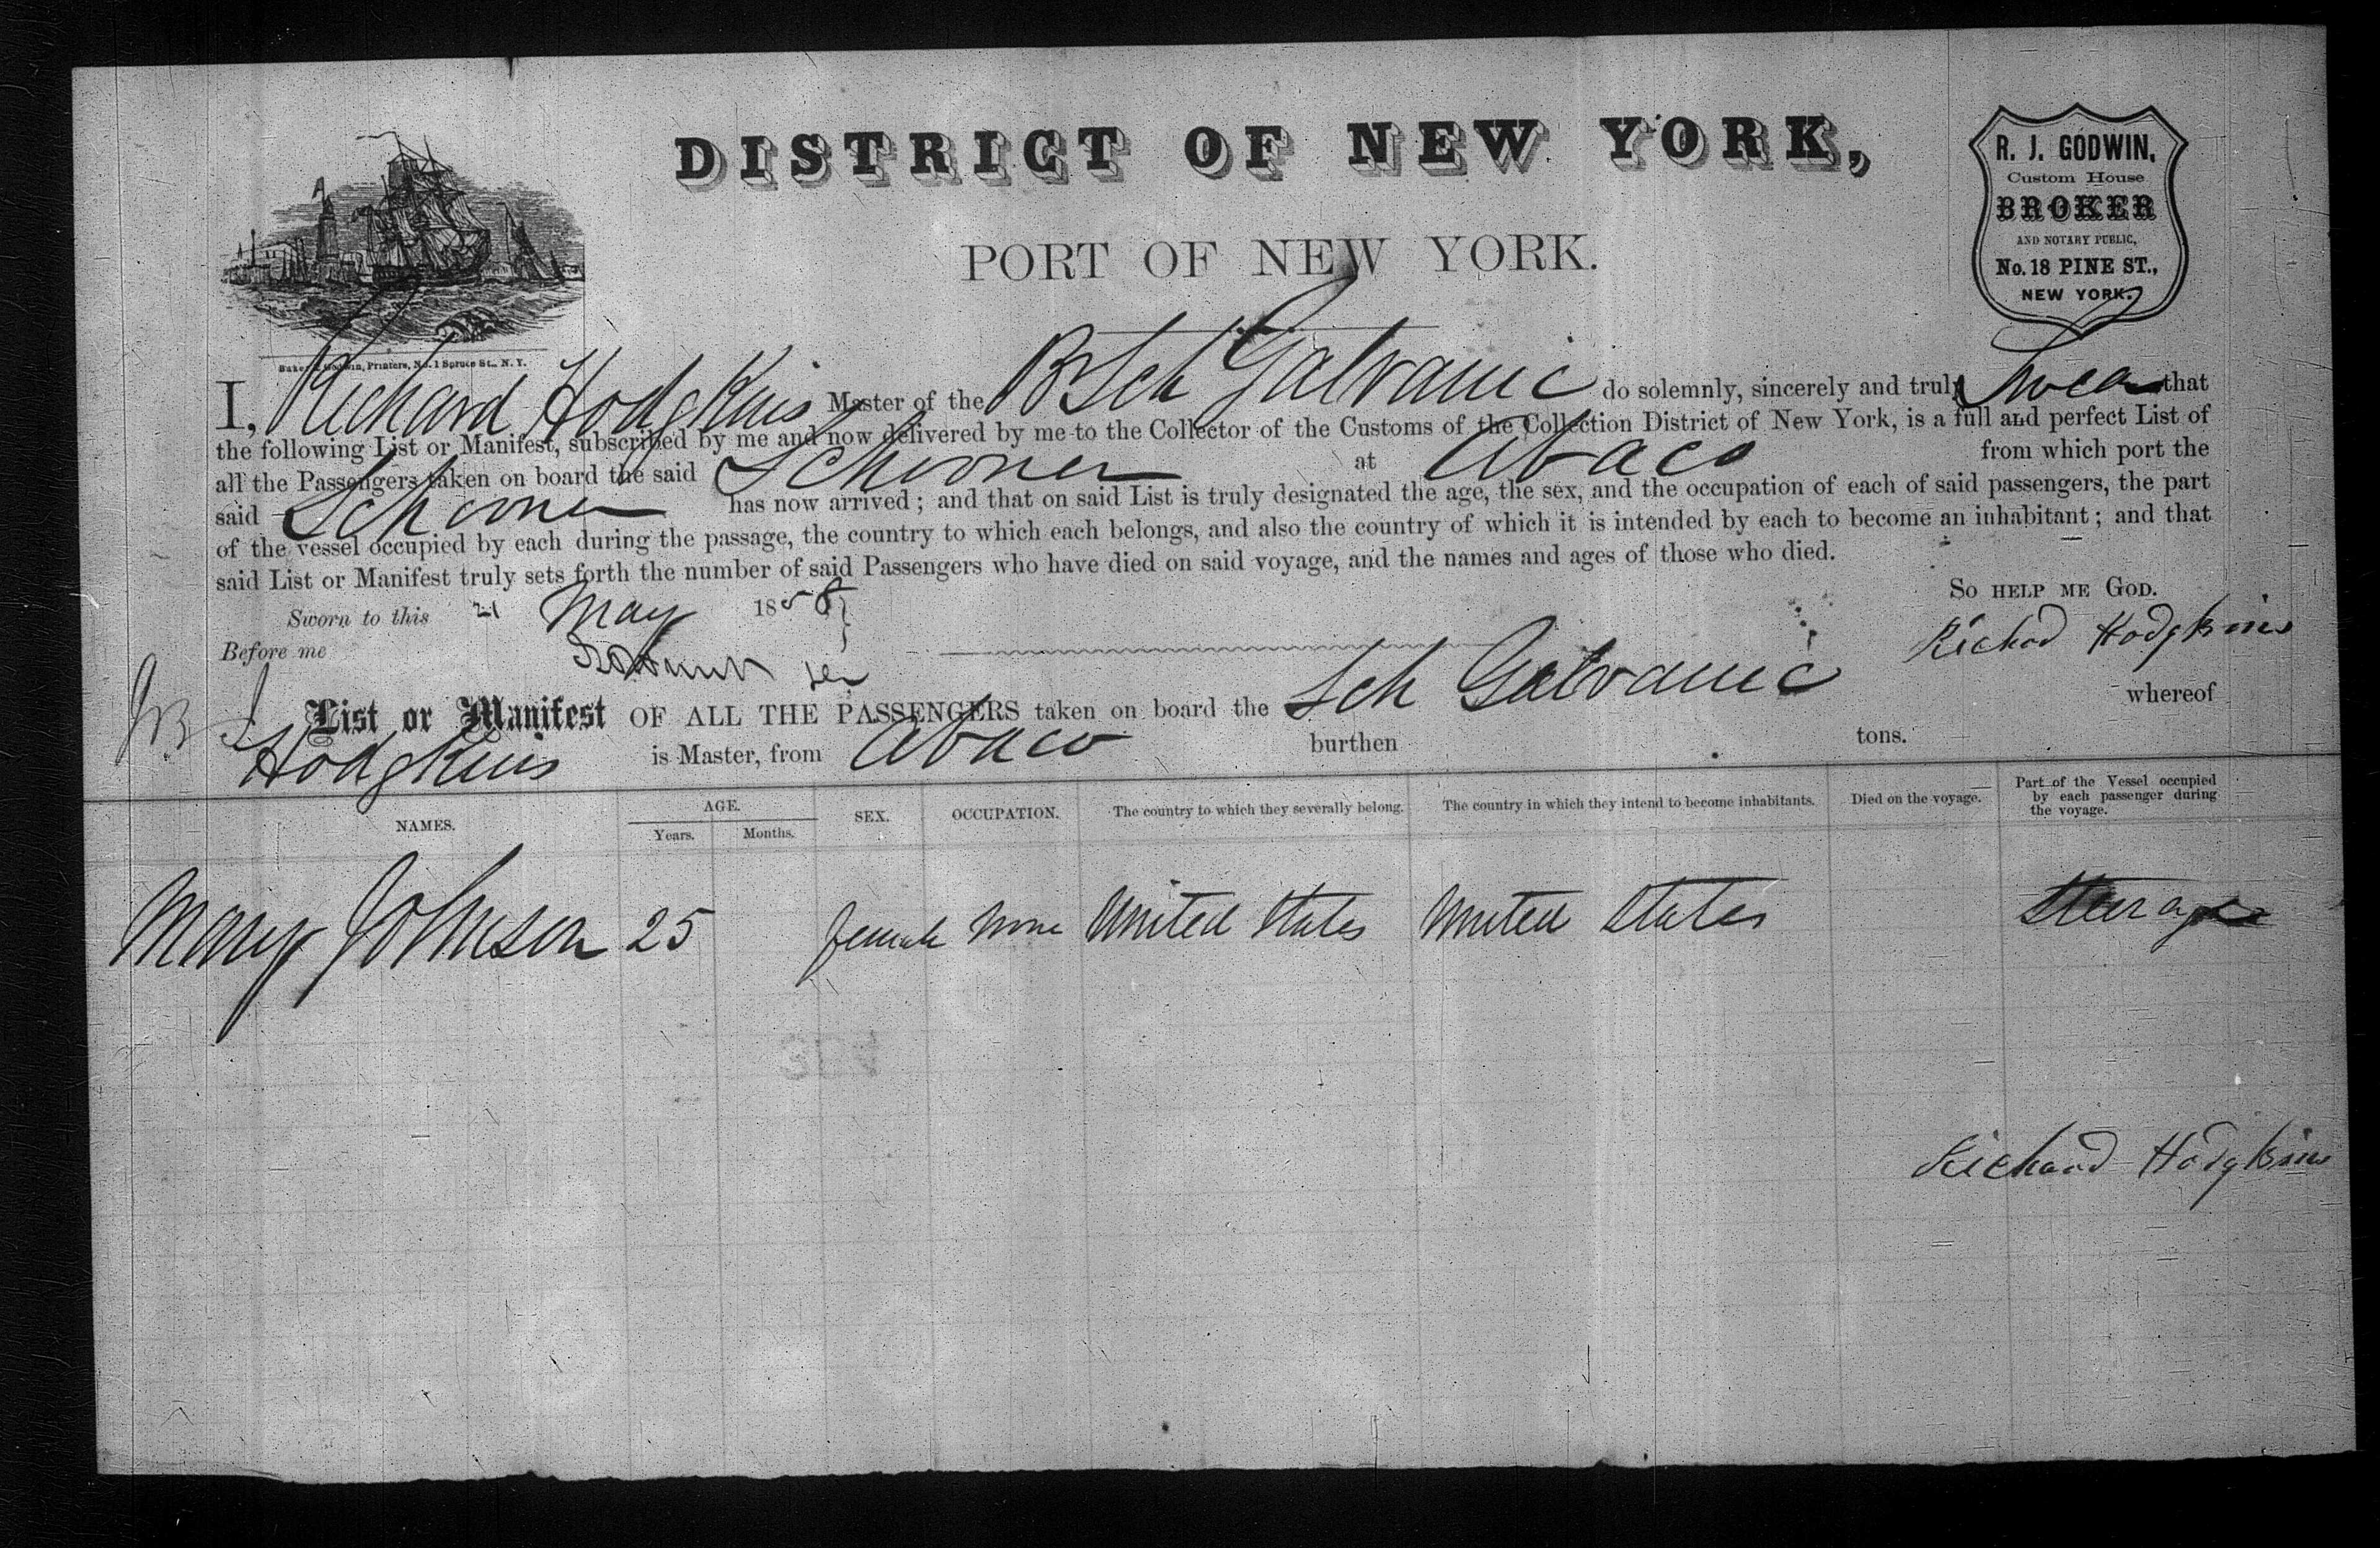 DISTRICT OF NEW YORK,
PORT OF NEW YORK.
R. J. GODWIN,
Custom House
BROKER
AND NOTARY PUBLIC,
No. 18 PINE ST.,
NEW YORK.
Baker & Godwin, Printers, No. 1 Spruce St., N. Y.
I, Richard Hodgkins Master of the B Sch Galvanic do solemnly, sincerely and truly Swear that
the following List or Manifest, subscribed by me and now delivered by me to the Collector of the Customs of the Collection District of New York, is a full and perfect List of
all the Passengers taken on board the said Schooner at Abaco from which port the
said Schooner has now arrived; and that on said List is truly designated the age, the sex, and the occupation of each of said passengers, the part
of the vessel occupied by each during the passage, the country to which each belongs, and also the country of which it is intended by each to become an inhabitant; and that
said List or Manifest truly sets forth the number of said Passengers who have died on said voyage, and the names and ages of those who died.
So help me God.
Sworn to this 21 May 1858
Richod Hodgkins
Before me
List or Manifest OF ALL THE PASSENGERS taken on board the Sch Galvanic whereof
Hodgkins is Master, from Abaco burthen tons.
NAMES. AGE. Years. Months. SEX. OCCUPATION. The country to which they severally belong. The country in which they intend to become inhabitants. Died on the voyage. Part of the Vessel occupied by each passenger during the voyage.
Mary Johnson 25 female None United States United States Steerage
Richard Hodgkins